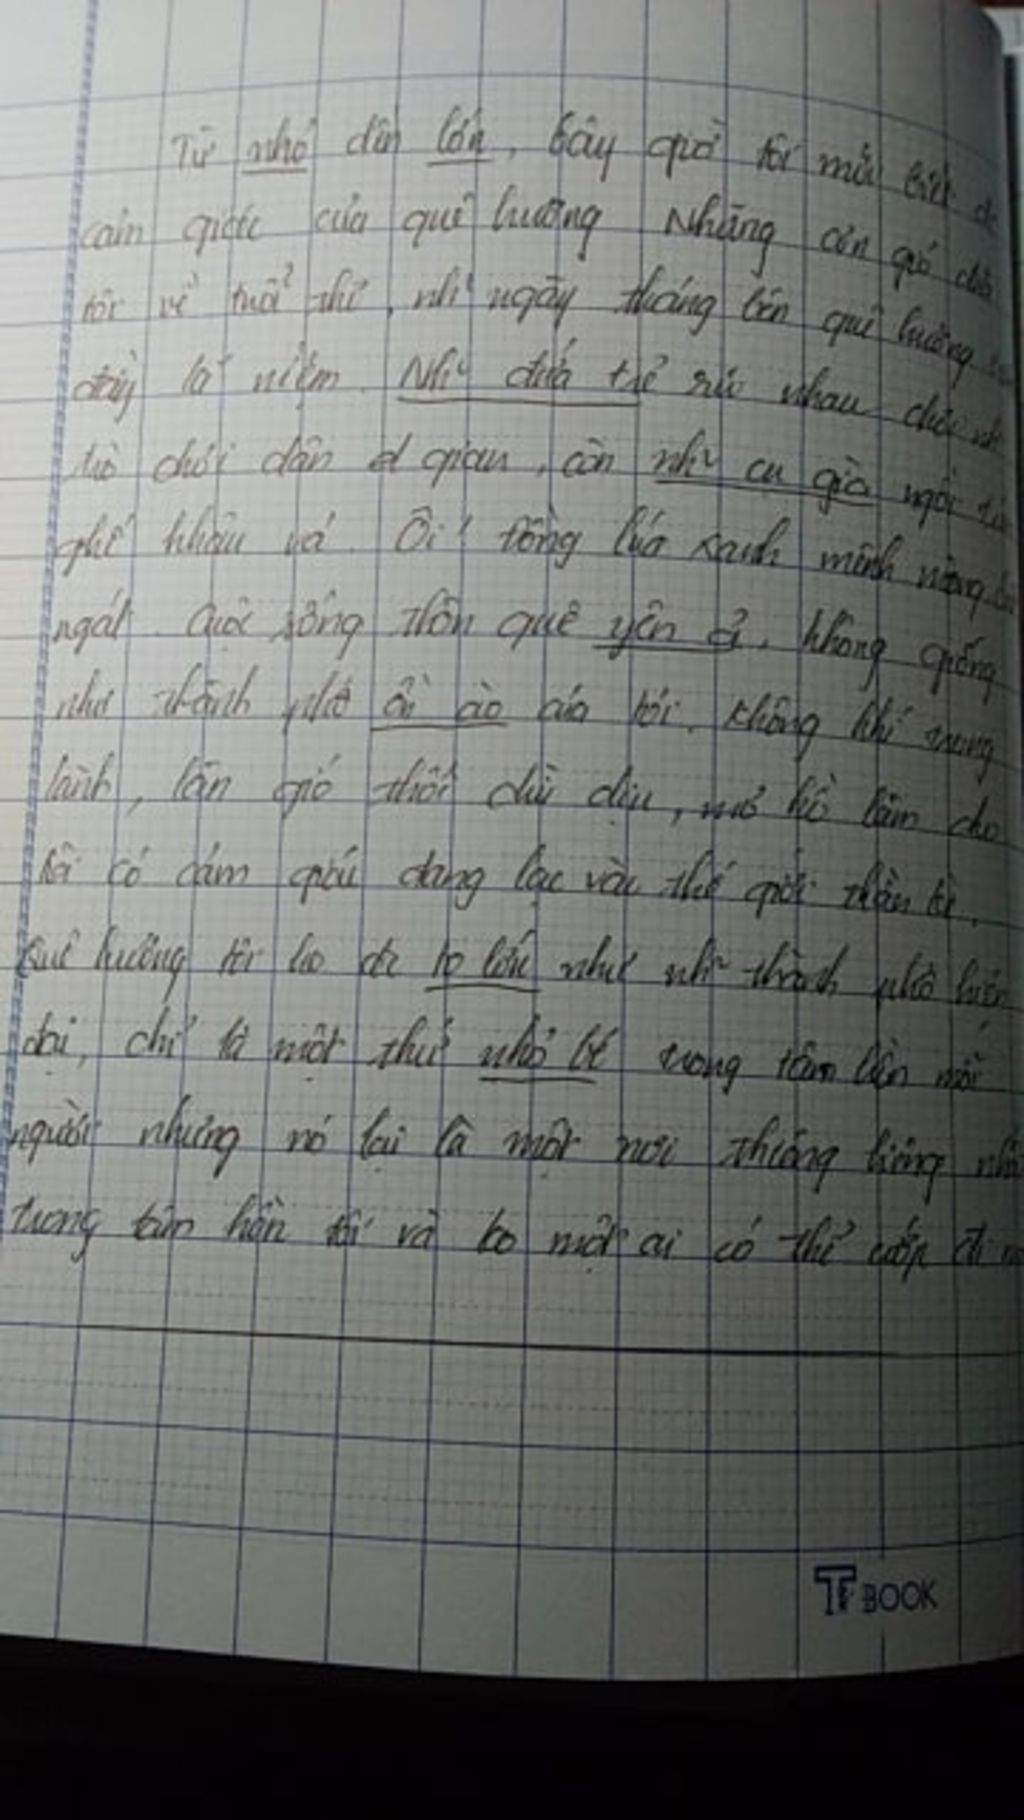 Từ nhỏ đến lớn, bây giờ tôi mới biết
cảm giác của quê hương Những cơn gió
tôi về tuổi thơ, nhữ ngày tháng bên quê hương
đầy kỉ niệm. Nhữ đứa trẻ rủ nhau chơi
trò chơi dân d gian, còn nhữ cụ già ngồi
ghế khâu vá. Ôi! đồng lúa xanh mênh
ngát. Cuộc sống thôn quê yên ả, không giống
như thành phố ồn ào náo Không khí trong
lành, làn gió thổi dìu dịu, làm cho
tôi có cảm giác đang lạc vào thế giới thần kì.
Quê hương tôi ko to lớn như nhữ thành phố hiện
đại, chỉ là một thứ nhỏ bé trong tâm hồn mỗi
người nhưng nó lại là một nơi thiêng liêng
trong tâm hồn tôi và ko một ai có thể cướp đi
TF BOOK